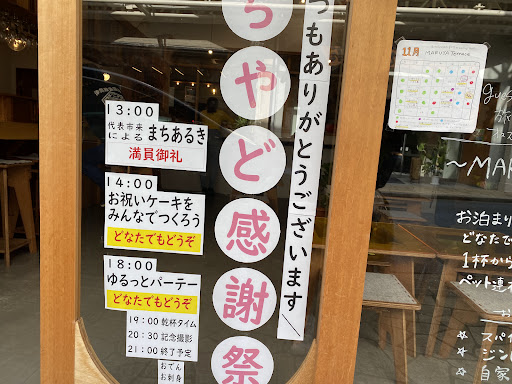 つもありがとうございます
らやど感謝祭
13:00
代表市来
による まちあるき
満員御礼
14:00
お祝いケーキを
みんなでつくろう
どなたでもどうぞ
18:00
ゆるっとパーテー
どなたでもどうぞ
19:00 乾杯タイム
20:30 記念撮影
21:00 終了予定
おでん
お刺身
11月
MARUYA Terrace
gu
旅
～MAR
お泊まり
どなたで
1杯から
ペット連
☆ スパイ
☆ ジン
☆ 自家